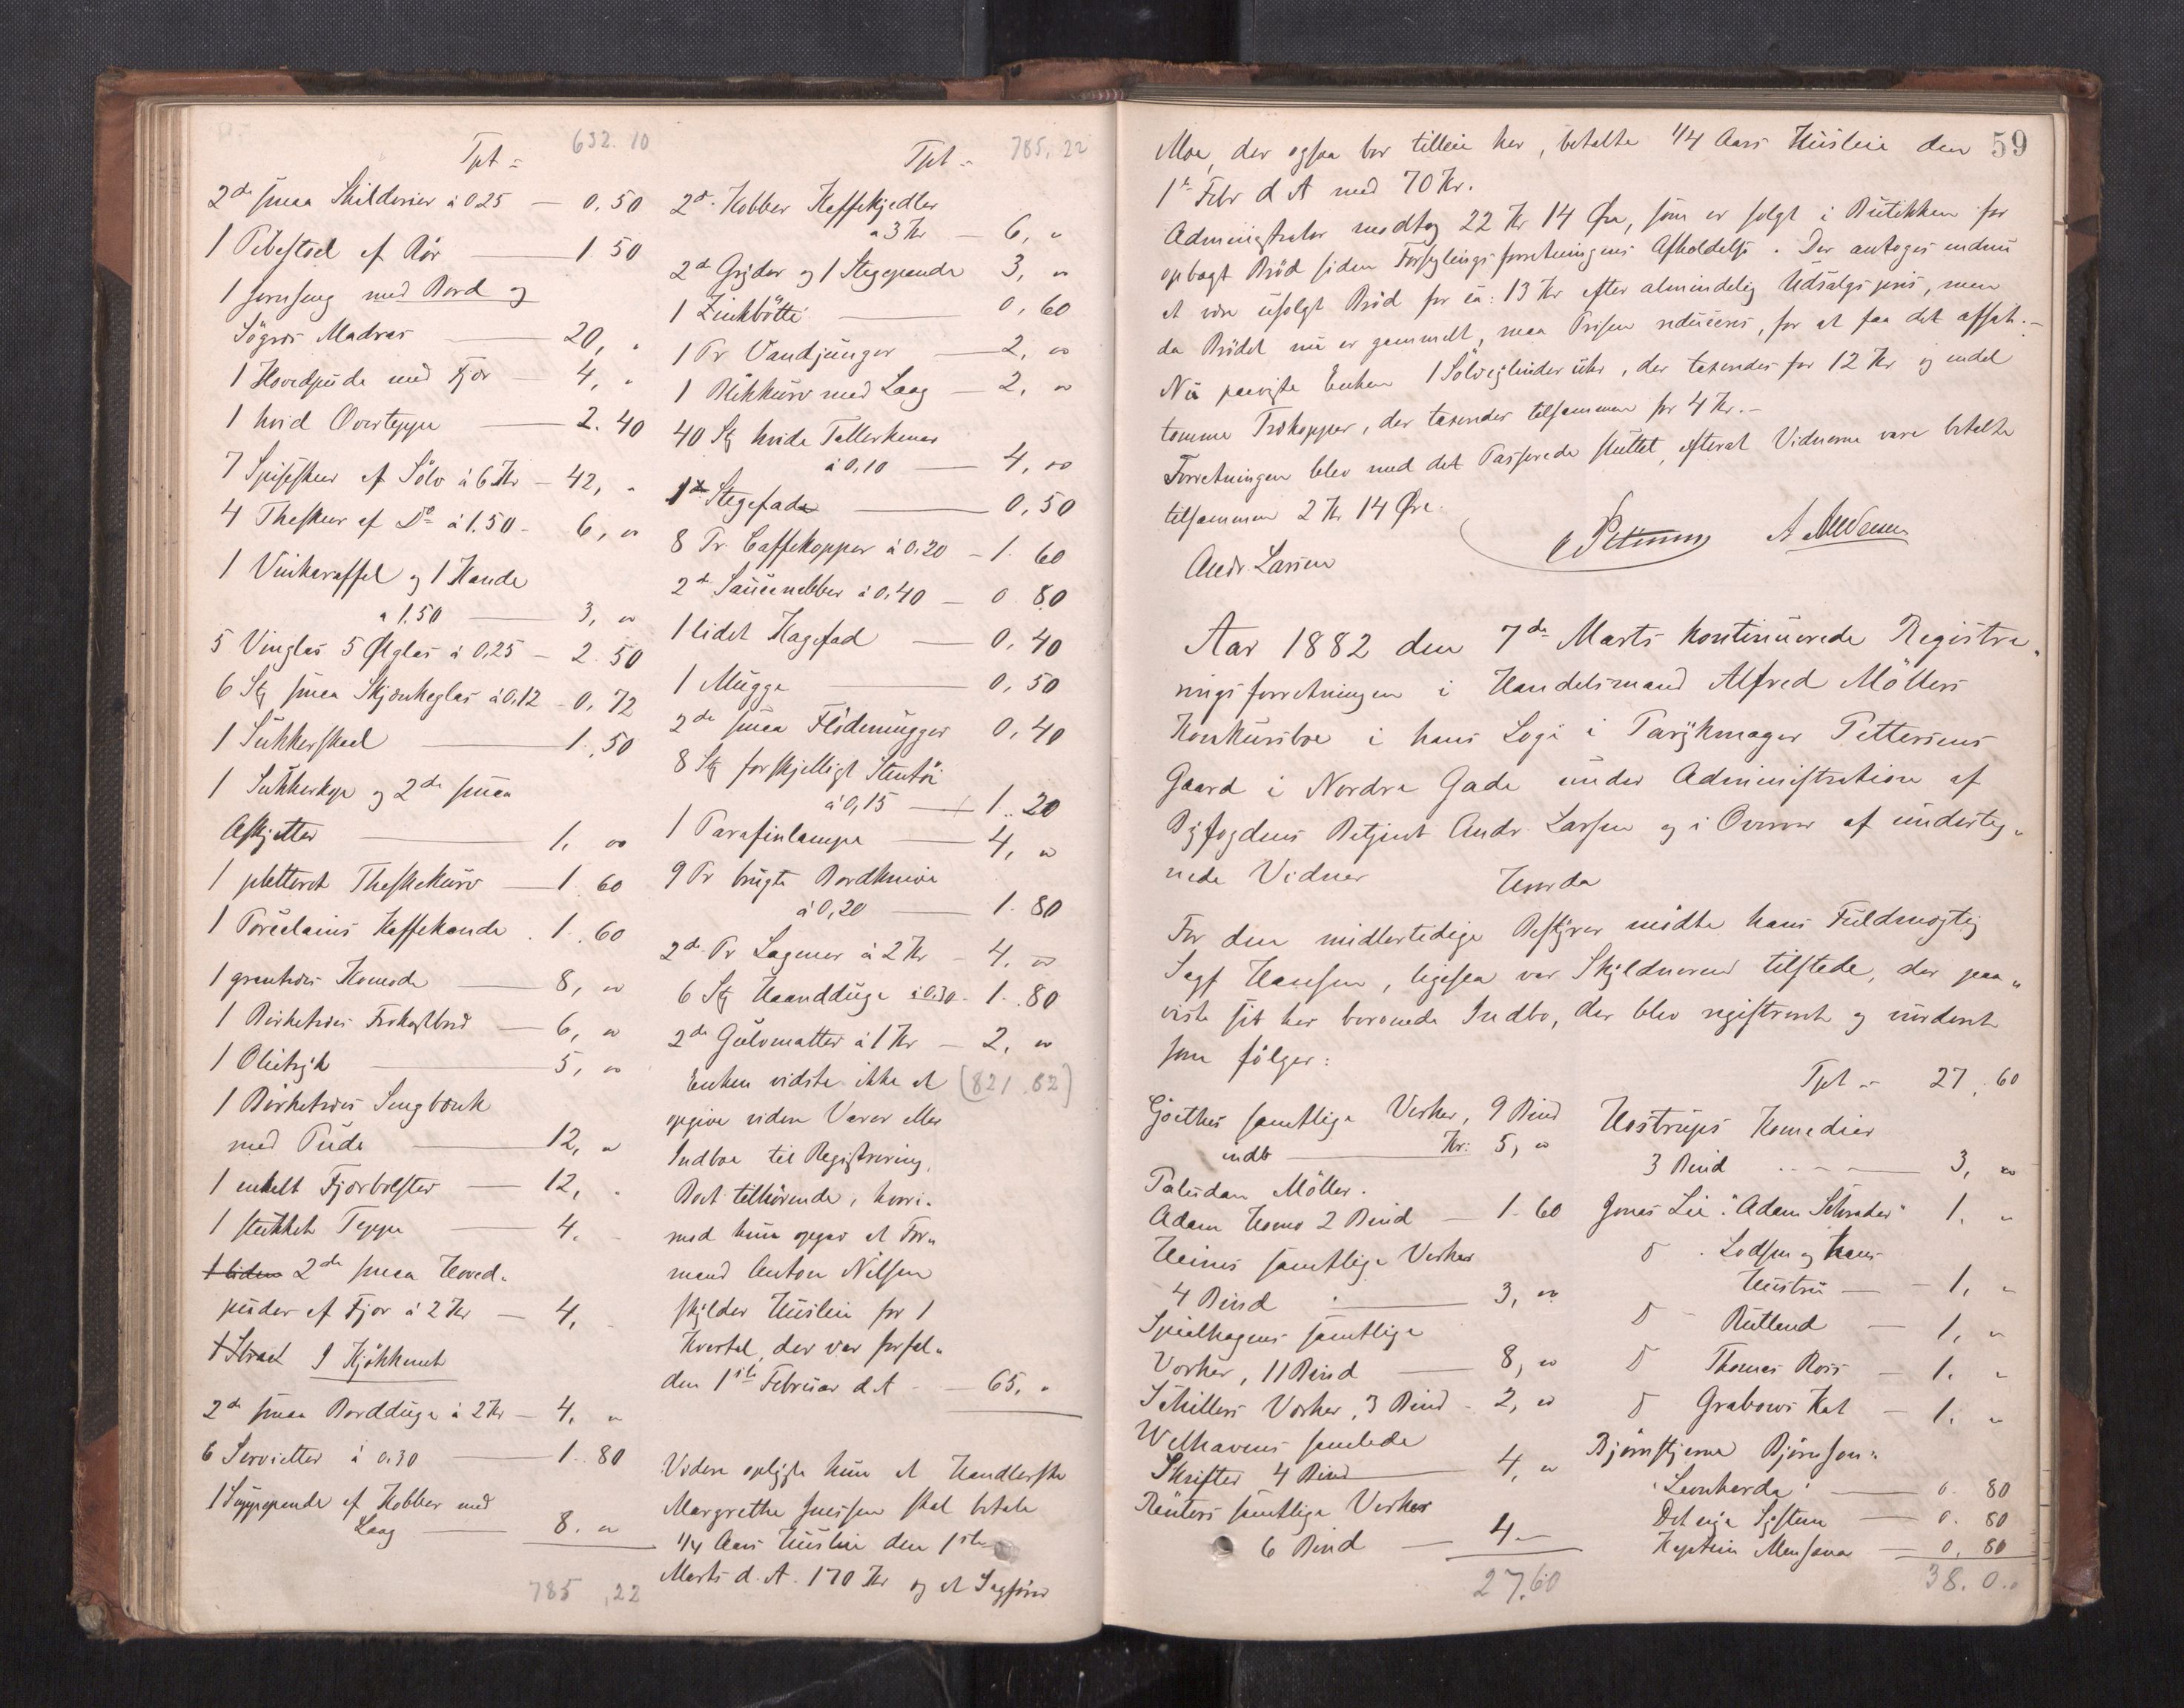 Tpt = 632.10
2de smaa Skilderier à 0.25 — 0.50
1 Pibestoel af Rör — 1 50
1 Jernseng med Bord og
Søgræs Madras — 20, "
1 Hovedpude med Fjær — 4, "
1 hvid Overteppe — 2.40
7 Spiseskeer af Sölv à 6 Kr — 42, "
4 Theskeer af Do à 1.50 - 6, "
1 Vinkaraffel og 1 Kande
à 1.50 — 3, "
5 Vinglas 5 Ølglas à 0,25 — 2.50
6 Stk smaa Skjænkeglas à 0,12 - 0,72
1 Sukkerskaal — 1.50
1 Sukkerkop og 2de smaa
Askjetter — 1, "
1 pletteret Theskekurv — 1 60
1 Porcelains Kaffekande . 1. 60
1 grantræs Komode — 8, "
1 Birketræs Frokostbord — 6, "
1 Olietryk — 5, "
1 Birketræs Sengbænk
med Pude — 12, "
1 enkelt Fjærbolster — 12, "
1 stukket Teppe — 4. "
1 liden 2de smaa Hoved-
puder af Fjær à 2 Kr — 4,
I Kjøkkenet
2de smaa Bordduge à 2 Kr — 4, "
6 Servietter à 0.30 — 1. 80
1 Suppepande af Kobber med
Laag — 8. "
785,22
Tpt = 785,22
2de Kobber Kaffekjedler
à 3 Kr — 6, "
2de Gryder og 1 Stegepande 3, "
1 Zinkbötte — 0,60
1 Pr Vandjunger — 2, "
1 Blikkurv med Laag — 2, "
40 Stk hvide Tallerkener
à 0,10 — 4, "
1 Stegefad — 0,50
8 Pr. Caffekopper à 0,20 - 1. 60
2de Saucenebber à 0,40 — 0 80
1 lidet Kagefad — 0,40
1 Mugge — 0,50
2de smaa Flödemugger 0,40
8 Stk forskjelligt Stentöi
à 0,15 — 1.20
1 Parafinlampe — 4, "
9 Pr brugte Bordknive
à 0,20 — 1. 80
2de Pr Lagener à 2 Kr — 4, "
6 Stk Haandduge à 0.30 - 1. 80
2de Gulvmatter à 1 Kr — 2, "
Enken vidste ikke at (821.82)
opgive videre Varer eller
Indboe til Registrering,
Boet tilhörende, hvori-
mod hun opgav at For-
mand Anton Nilsen
skylder Husleie for 1
Kvartal, der var forfal-
den 1ste Februar d. A — 65, "
Videre oplyste hun at Handlerske
Margrethe Juessen skal betale
1/4 Aars Husleie den 1ste
Marts d. A. 170 Kr og at Sagfører
59
Moe, der ogsaa bor tilleie her, betalte 1/4 Aars Husleie den
1ste Febr d A med 70 Kr.
Administrator modtog 22 Kr 14 Øre, som er solgt i Butikken for
opbagt Bröd siden Forseglingsforretningens Afholdelse. Der antoges endnu
at være usolgt Bröd for ca: 13 Kr efter almindelig Udsalgspris, men
da Brödet nu er gammelt, maa Prisen reduceres, for at faa det afsat. —
Nu paaviste Enken 1 Sölvcylinderuhr, der taxeredes for 12 Kr og endel
tomme Trækopper, der taxeredes tilsammen for 4 Kr. —
Forretningen blev med det Passerede sluttet, efterat Vidnerne vare betalte
tilsammen 2 Kr 14 Øre.
Andr. Larsen
Aar 1882 den 7de Marts kontinuerede Registre-
ringsforretningen i Handelsmand Alfred Möllers
Konkursboe i hans Logi i Parykmager Pettersens
Gaard i Nordre Gade under Administration af
Byfogdens Betjent Andr. Larsen og i Overvær af underteg-
nede Vidner
Hvorda
For den midlertidige Bestyrer mödte hans Fuldmægtig
Sagf Hansen, ligesaa var Skyldneren tilstede, der paa-
viste sit her beroende Indbo, der blev registreret og vurderet
som fölger:
Goethes samtlige Verker, 9 Bind
indb — Kr: 5, "
Paludan Möller.
Adam Homo 2 Bind — 1. 60
Heines samtlige Verker
4 Bind — 3, "
Spielhagens samtlige
Verker, 11 Bind — 8, "
Schillers Verker, 3 Bind - 2, "
Welhavens samlede
Skrifter 4 Bind — 4, "
Reuters samtlige Verker
6 Bind — 4 —
27,60
Tpt = 27,60
Hostrups Komedier
3 Bind — 3, "
Jonas Lie: "Adam Schrader" 1. "
D . Lodsen og hans
Hustru — 1, "
D Rutland — 1, "
D Thomas Ross — 1. "
D Grabows Kat — 1. "
Björnstjerne Björnson:
"Leonharda" — 0. 80
Det nye System — 0. 80
Kaptein Mansana — 0. 80
38.0..